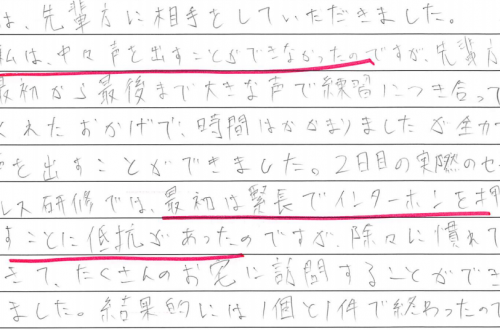 は、先輩方に相手をしていただきました。
私は、中々声を出すことができなかったのですが、先輩方
最初から最後まで大きな声で練習につき合って
くれたおかげで、時間はかかりましたが全力
声を出すことができました。2日目の実際のセ
ルス研修では、最初は緊長でインターホンをオ
すことに低抗があったのですが、除々に慣れて
きて、たくさんのお宅に訪問することができ
ました。結果的には1個と1件で終わったの